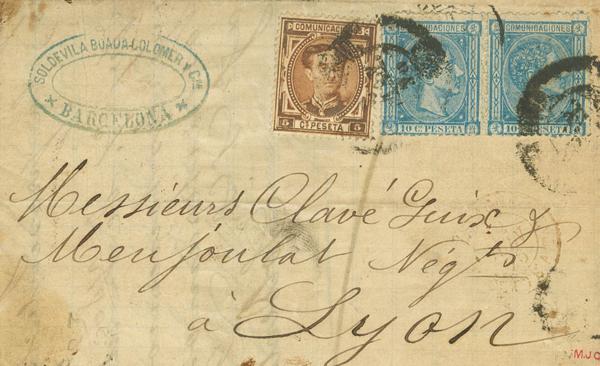 SOLDEVILA BOADA COLOMER Y Cía
BARCELONA
COMUNICACIONES
5 Cs PESETA 5
COMUNICACIONES
10 Cs PESETA
COMUNICACIONES
10 Cs PESETA
Messieurs Clavé Guix &
Menjoulat Négts
à Lyon
M.J.C